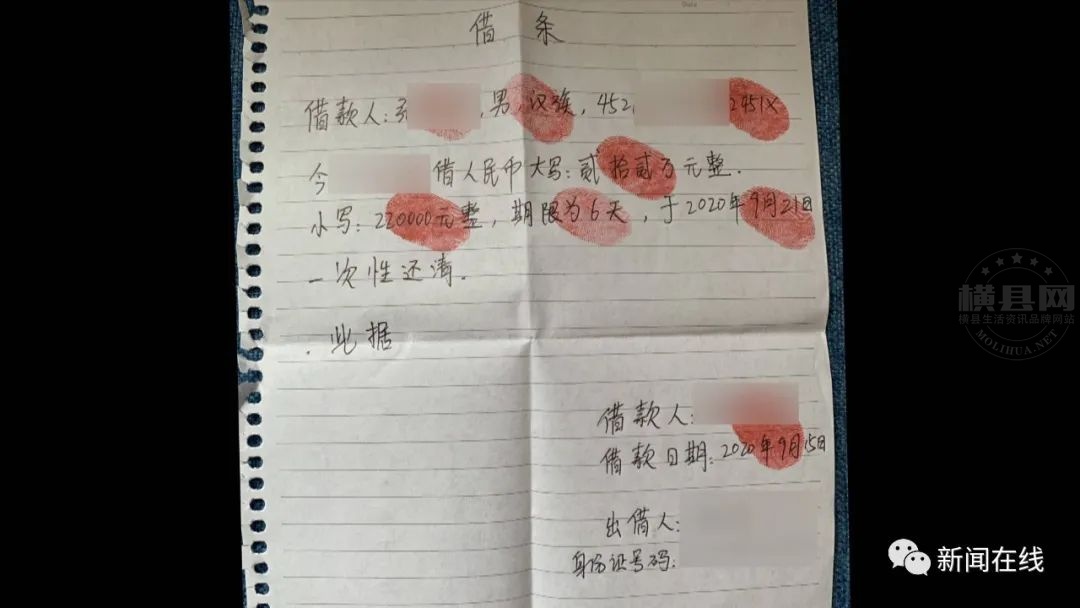 借条
借款人:张 ,男,汉族,452 2451X
今 借人民币大写:贰拾贰万元整.
小写:220000元整,期限为6天,于2020年9月21日
一次性还清.
.此据
借款人:
借款日期:2020年9月15日
出借人:
身份证号码:
横县网
横县生活资讯品牌网站
MOLIHUA.NET
新闻在线